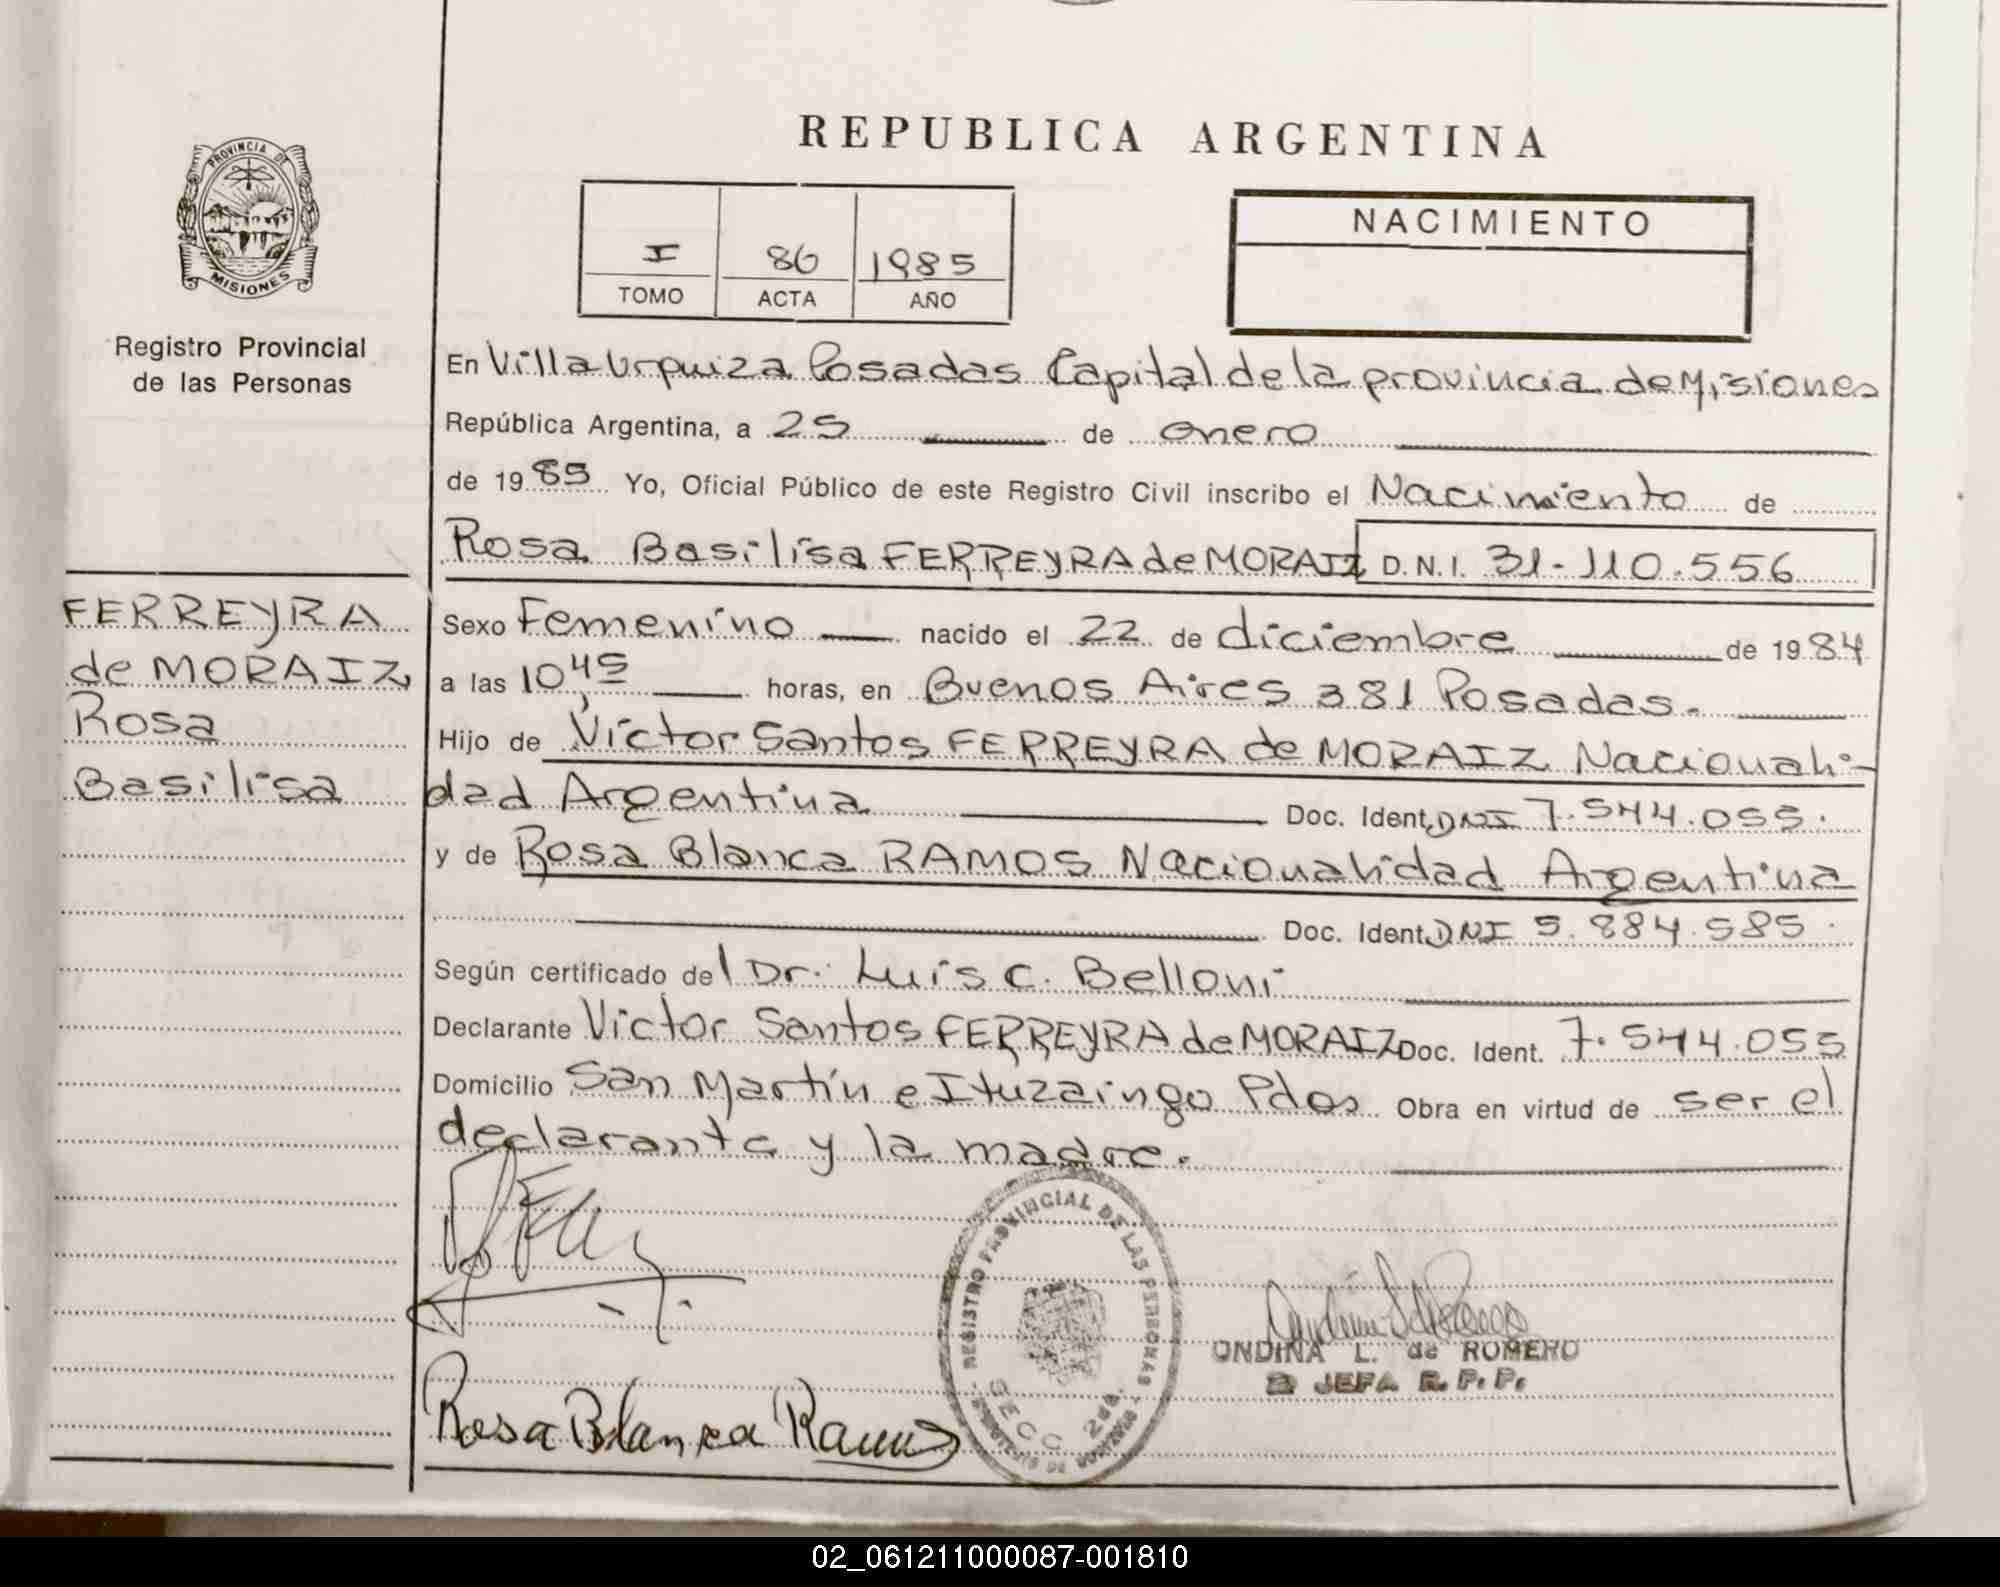 REPUBLICA ARGENTINA
PROVINCIA DE
MISIONES
Registro Provincial
de las Personas
I 86 1985
TOMO ACTA AÑO
NACIMIENTO
En Villa Urquiza Posadas Capital de la provincia de Misiones
República Argentina, a 25 de enero
de 1985 Yo, Oficial Público de este Registro Civil inscribo el Nacimiento de
Rosa Basilisa FERREYRA de MORAIZ D.N.I. 31-110.556
FERREYRA
de MORAIZ,
Rosa
Basilisa
Sexo Femenino nacido el 22 de diciembre de 1984
a las 10,45 horas, en Buenos Aires 381 Posadas.
Hijo de Víctor Santos FERREYRA de MORAIZ Nacionali-
dad Argentina Doc. Ident. DNI 7.544.055.
y de Rosa Blanca RAMOS Nacionalidad Argentina
Doc. Ident. DNI 5.884.585.
Según certificado del Dr. Luis C. Belloni
Declarante Víctor Santos FERREYRA de MORAIZ Doc. Ident. 7.544.055
Domicilio San Martín e Ituzaingo Pdas Obra en virtud de ser el
declarante y la madre.
REGISTRO PROVINCIAL DE LAS PERSONAS
SECC. 2da.
ONDINA L. de ROMERO
JEFA R.P.P.
Rosa Blanca Ramos
02_061211000087-001810